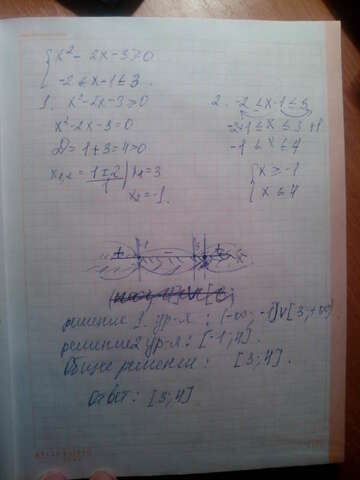 { x² - 2x - 3 ≥ 0
-2 ≤ x-1 ≤ 3.
1. x²-2x-3 ≥ 0
x²-2x-3=0
D = 1+3=4>0
x₁,₂ = 1±2/1 | x₁=3
x₂=-1.
2. -2 ≤ x-1 ≤ 3
-2+1 ≤ x ≤ 3+1
-1 ≤ x ≤ 4
{ x ≥ -1
x ≤ 4
+ -1 - 3 + x
решение 1. ур-я: (-∞; -1]∨[3;+∞)
решение 2 ур-я: [-1; 4].
Общие решения: [3; 4].
Ответ: [3; 4]